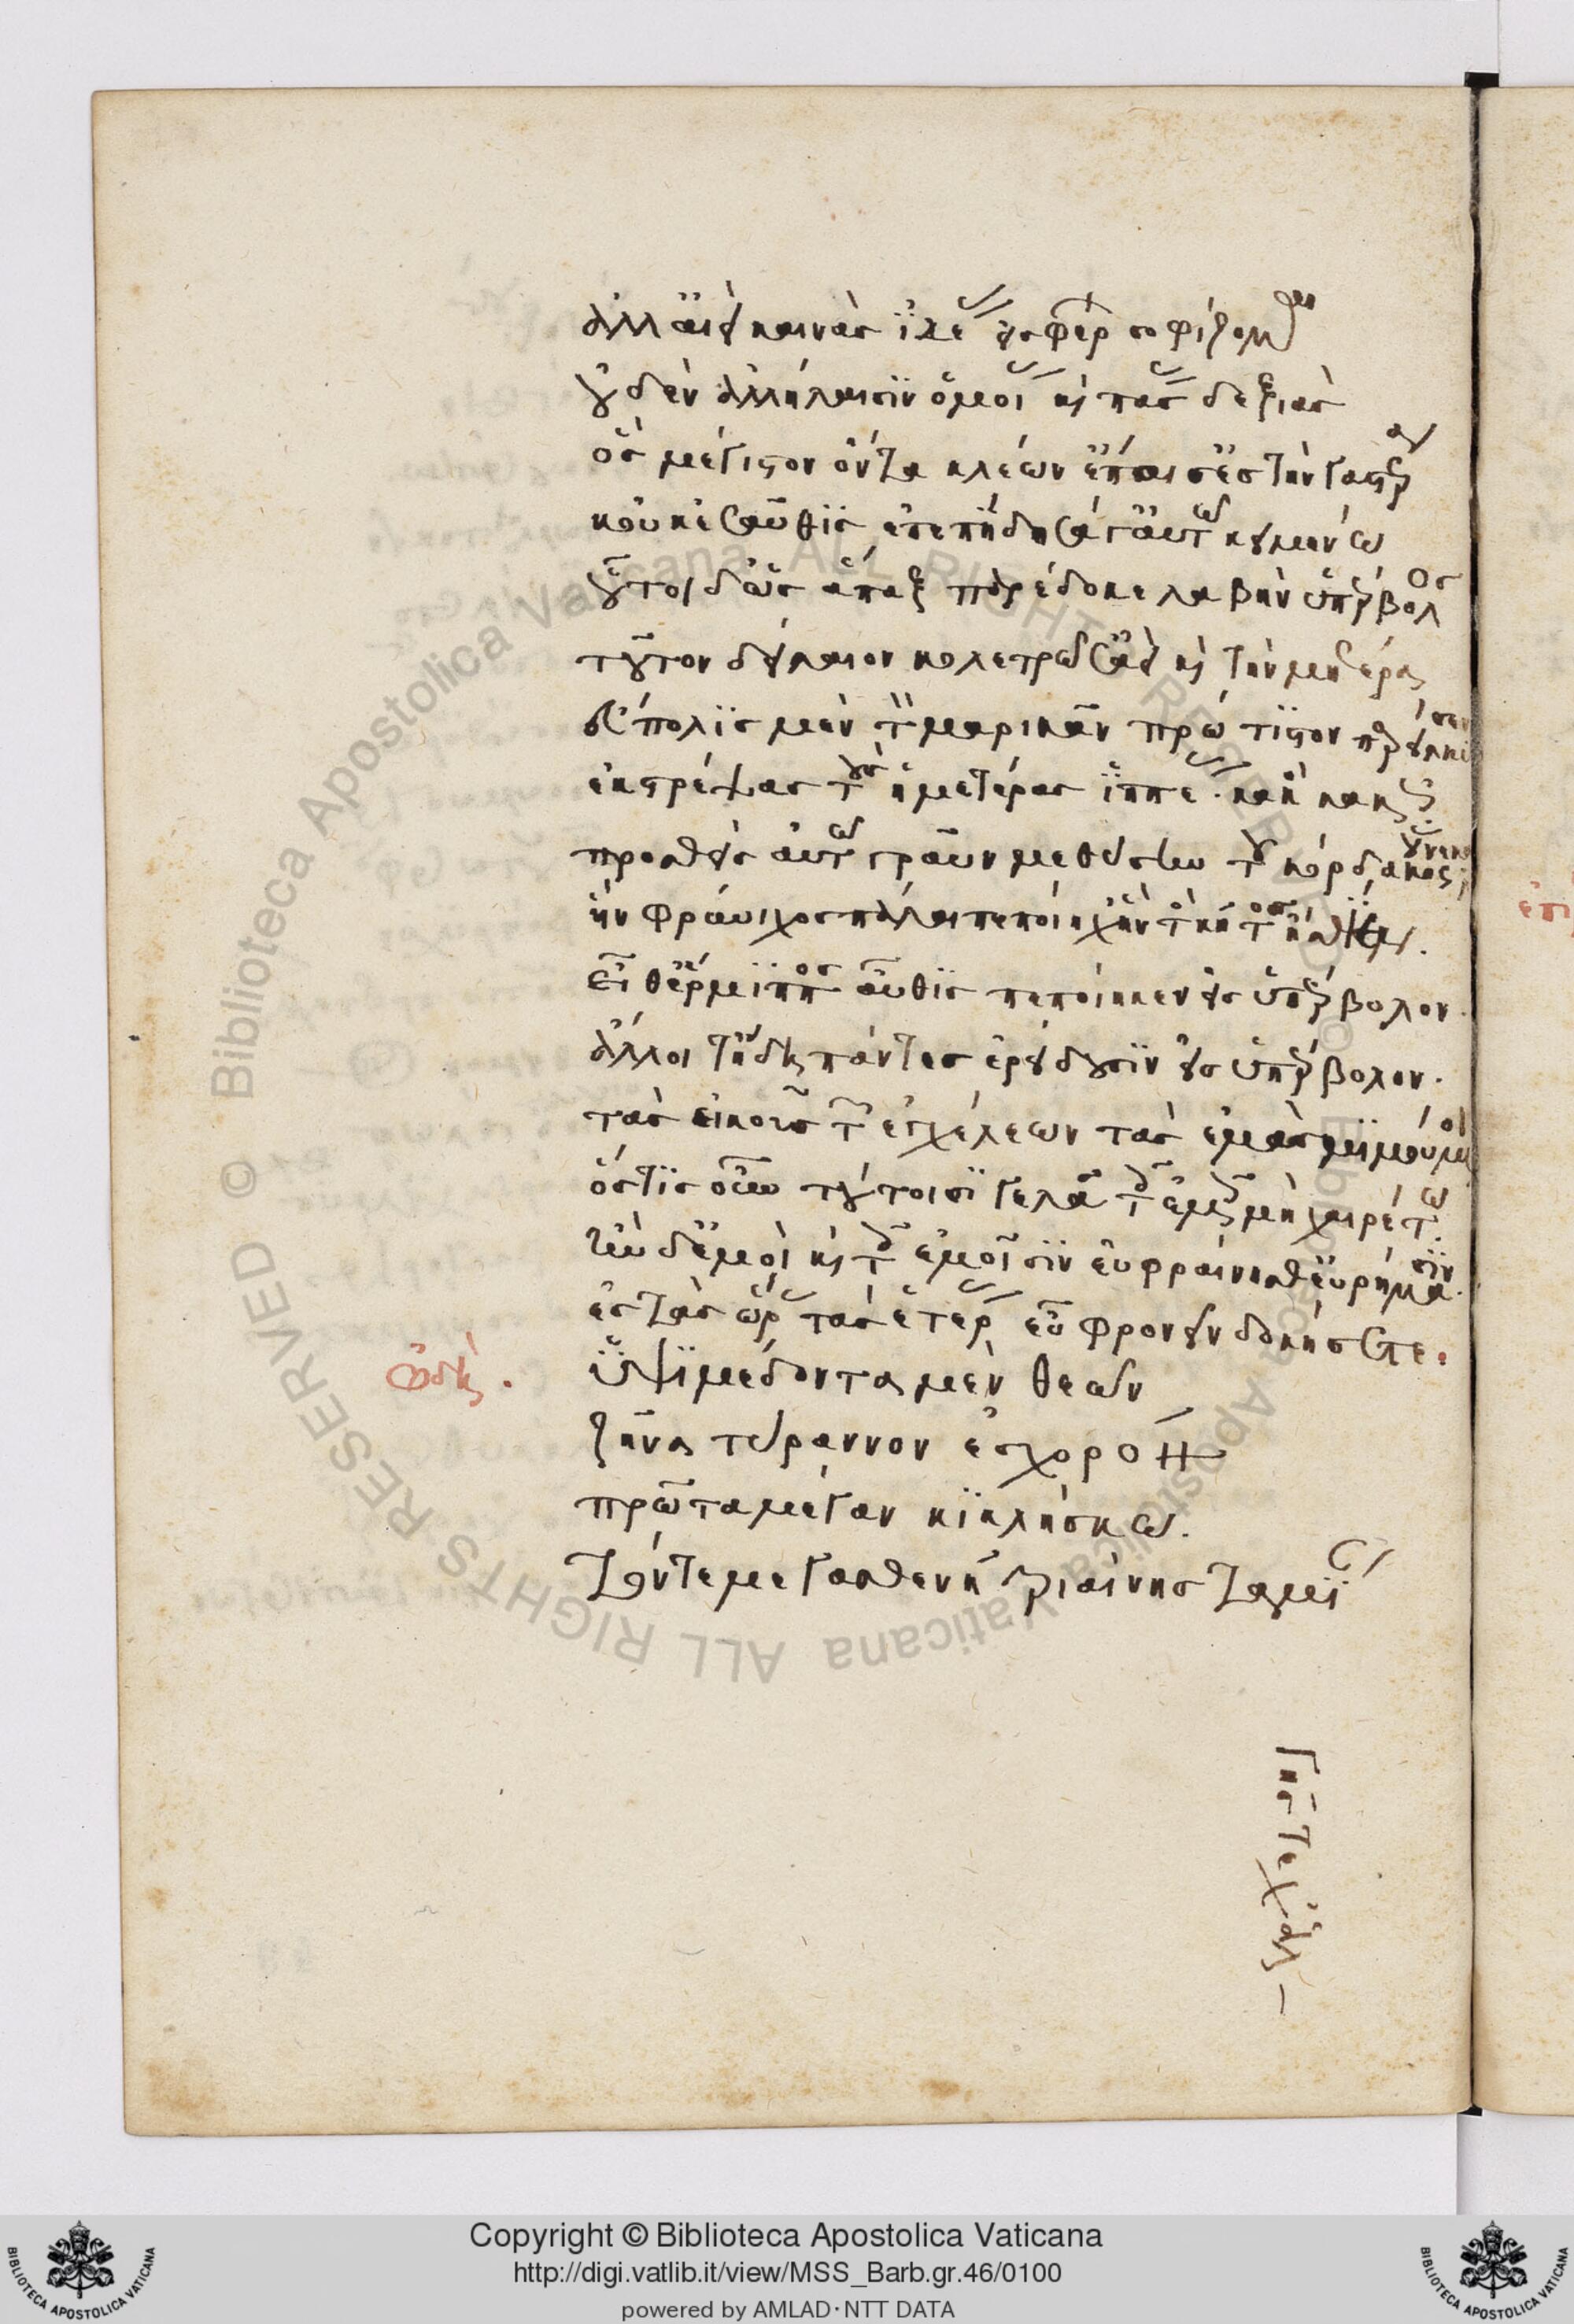 ἀλλ' ἀεὶ καινὰς ἰδέας εἰσφέρων σοφίζομαι
οὐδὲν ἀλλήλαισιν ὁμοίας καὶ πάσας δεξιὰς
ὃς μέγιστον ὄντα κλέων' ἔπαισ' ἐς τὴν γαστέρα
κοὐκ ἐσαῦθις ἐπεπήδησά γ' αὐτῶ κειμένω
οὗτοι δ' ὡς ἅπαξ παρέδωκε λαβὴν ὑπέρβολος
τοῦτον δείλαιον κολετρῶσ' ἀεὶ καὶ τὴν μητέρα
εὔπολις μὲν τὸν μαρικᾶν πρώτιστον παρείλκυσεν
ἐκστρέψας τοὺς ἡμετέρας ἱππέας κακὸς κακῶς
προσθεὶς αὐτῶ γραῦν μεθύσην τοῦ κόρδακος οὕνεκα
ἣν φρύνιχος πάλαι πεποίηχ' ἣν τὸ κῆτος ἤσθιεν.
εἶθ' ἕρμιππος αὖθις πεποίηκεν εἰς ὑπέρβολον.
ἄλλοι τ' ἤδη πάντες ἐρείδουσιν εἰς ὑπέρβολον.
τὰς εἰκοὺς τῶν ἐγχέλεων τὰς ἐμὰς μιμούμενοι
ὅστις οὖν τούτοισι γελᾶ τοῖς ἐμοῖς μὴ χαιρέτω.
ἢν δ' ἐμοὶ καὶ τοῖς ἐμοῖσιν εὐφραίνησθ' εὑρήμασιν.
ἐς τὰς ὥρας τὰς ἑτέρας εὖ φρονεῖν δοκήσετε.
ὠδή. ὑψιμέδοντα μὲν θεῶν
ζῆνα τύραννον ἐς χορὸν
πρῶτα μέγαν κικλήσκω.
τόν τε μεγασθενῆ τριαίνης ταμίαν
γῆς τε
Copyright © Biblioteca Apostolica Vaticana
http://digi.vatlib.it/view/MSS_Barb.gr.46/0100
powered by AMLAD·NTT DATA